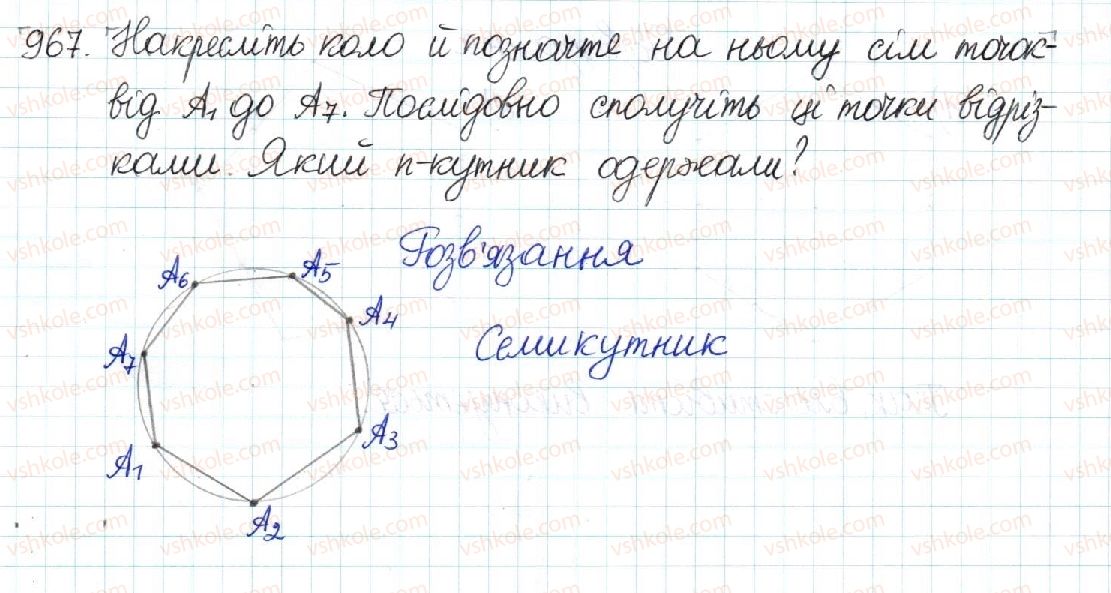 967. Накресліть коло й позначте на ньому сім точок
від A₁ до A₇. Послідовно сполучіть ці точки відріз-
ками. Який n-кутник одержали?
Розв'язання
A₆
A₅
A₄
Семикутник
A₇
A₃
A₁
A₂